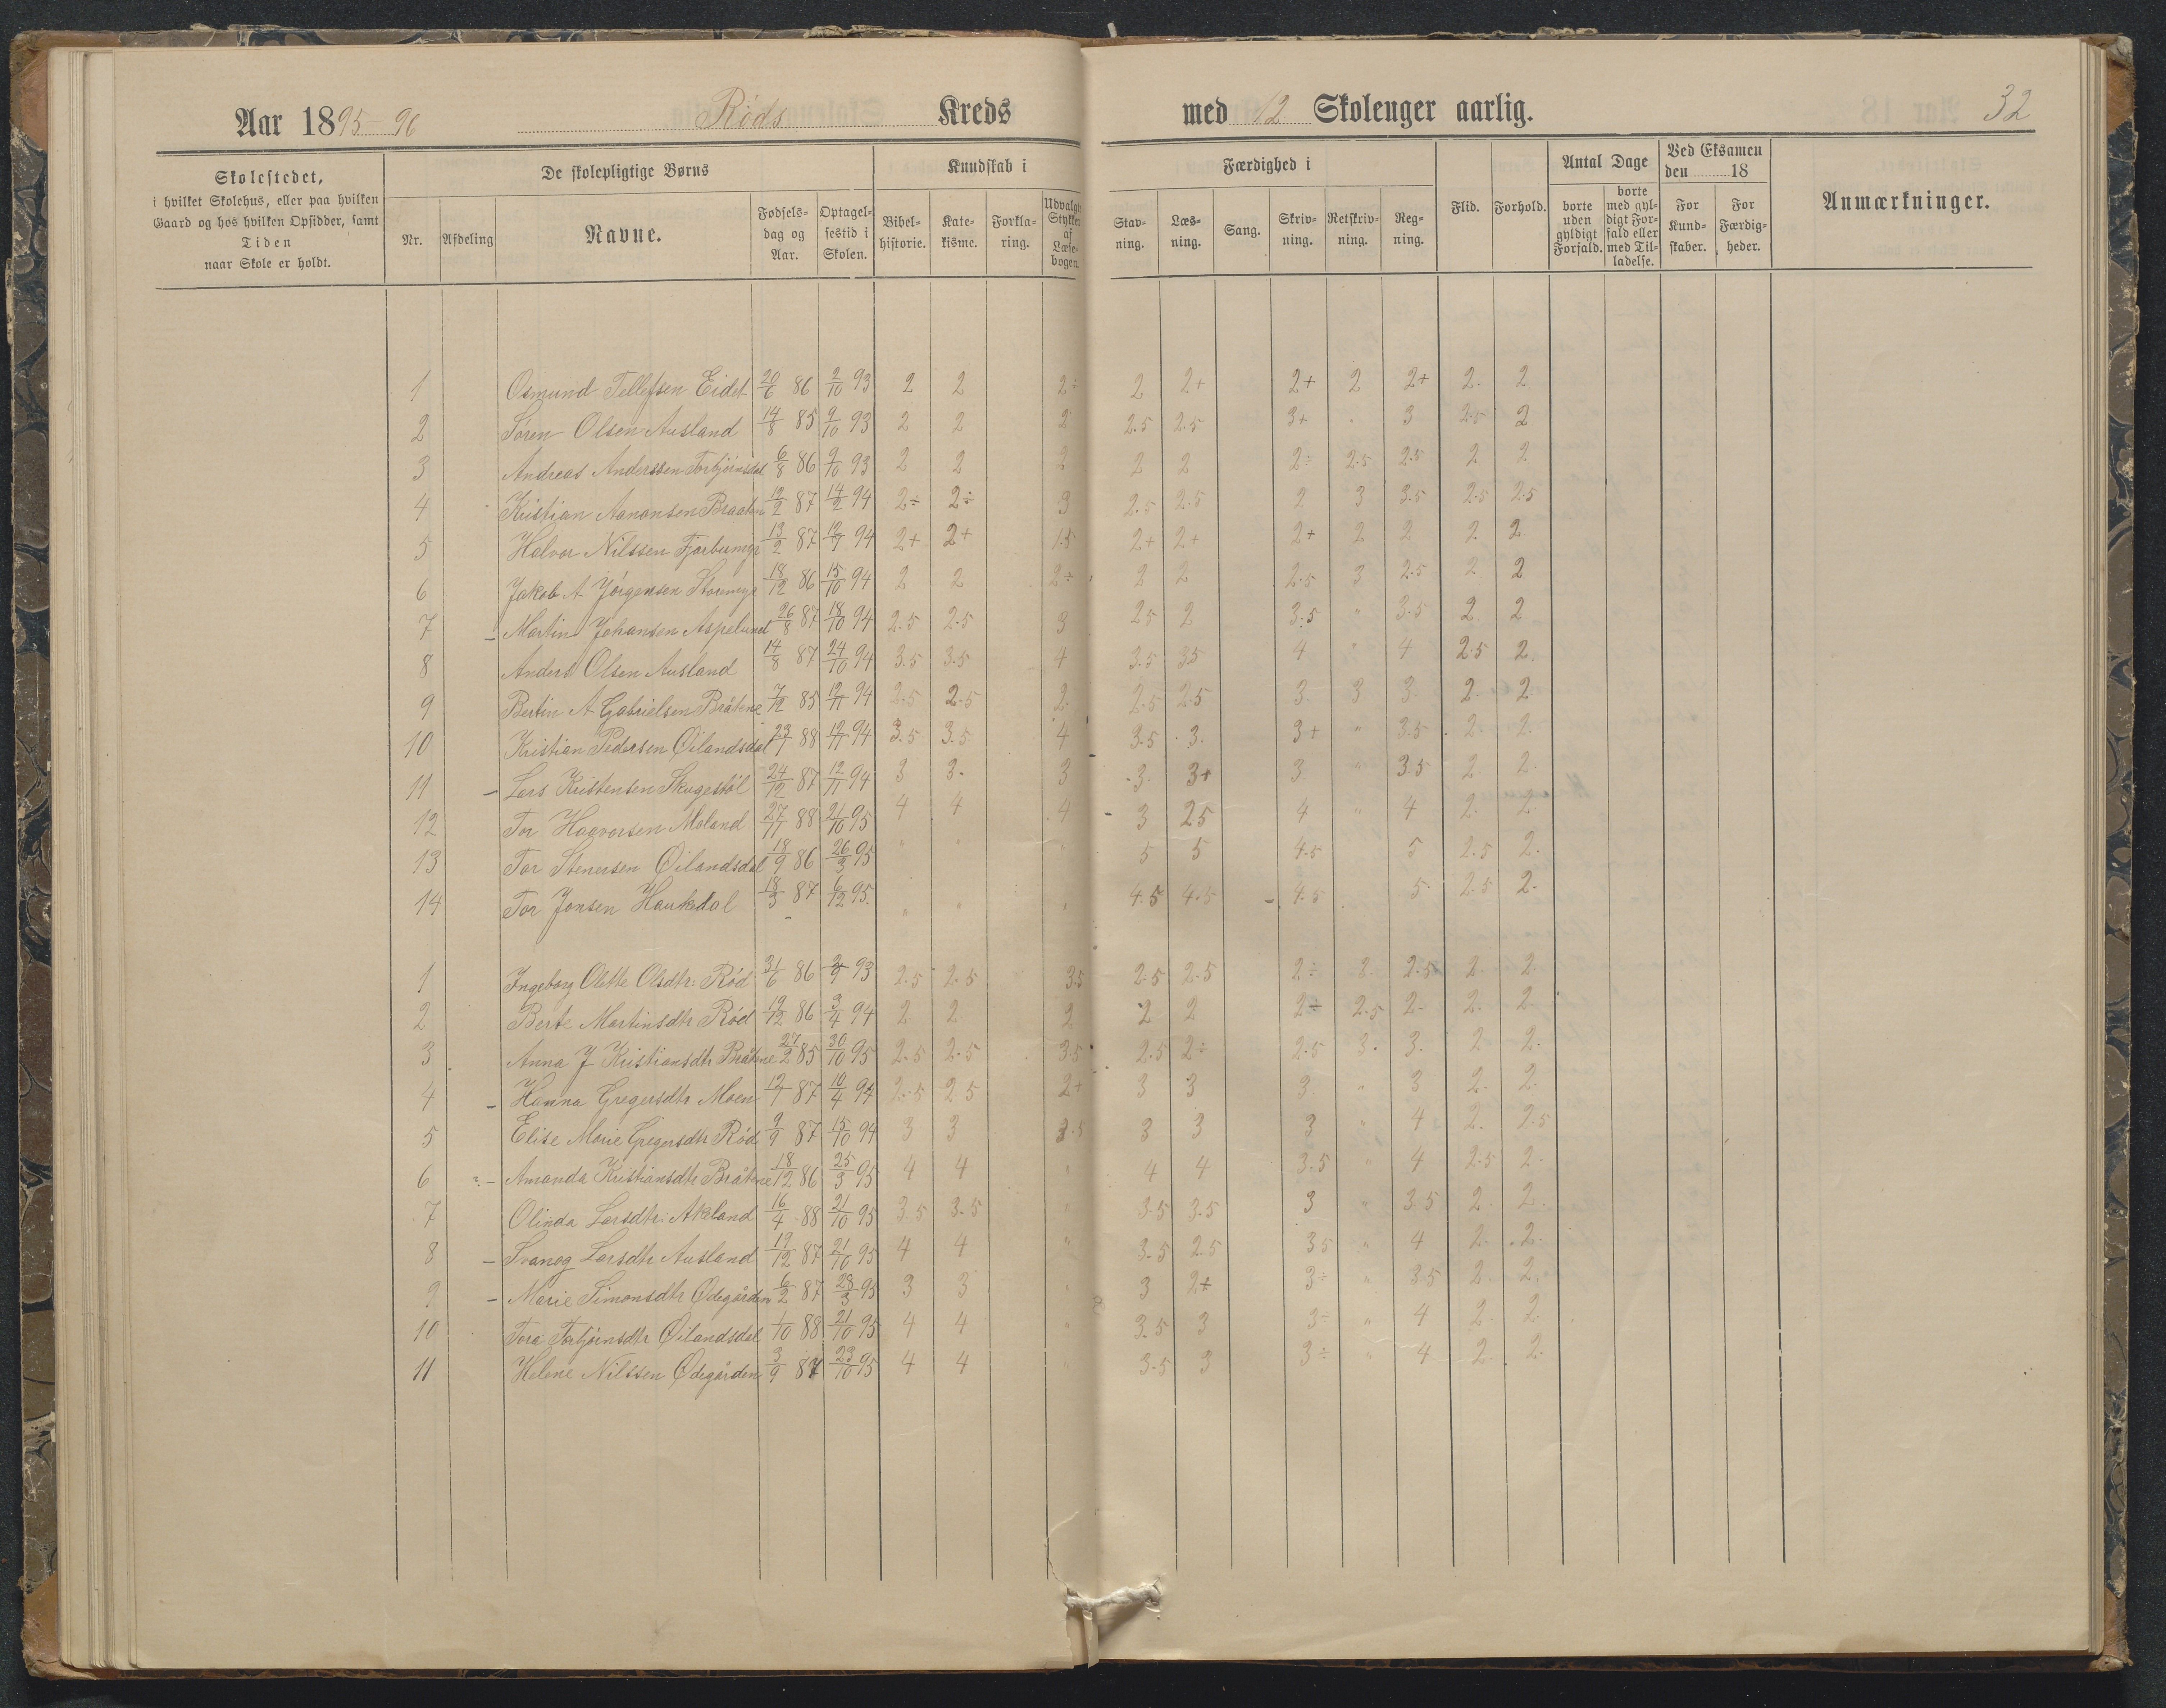 Aar 1895-96 Røds Kreds med 12 Skoleuger aarlig. 32
Skolestedet,
i hvilket Skolehus, eller paa hvilken
Gaard og hos hvilken Opsidder, samt
Tiden
naar Skole er holdt.
De skolepligtige Børns
Nr. Afdeling Navne. Fødsels-dag og Aar. Optagel-sestid i Skolen.
Kundskab i
Bibel-historie. Kate-kisme. Forkla-ring. Udvalgte Stykker af Læse-bogen.
Færdighed i
Stav-ning. Læs-ning. Sang. Skriv-ning. Retskriv-ning. Reg-ning.
Flid. Forhold.
Antal Dage
borte uden gyldigt Forfald. borte med gyl-digt For-fald eller med Til-ladelse.
Ved Eksamen
den 18
For Kund-skaber. For Færdig-heder.
Anmærkninger.
1 Osmund Tellefsen Eidet 20/6 86 2/10 93 2 2 2÷ 2 2+ 2+ 2 2+ 2. 2
2 Søren Olsen Ausland 14/8 85 9/10 93 2 2 2 2.5 2.5 3+ " 3 2.5 2
3 Andreas Anderssen Torbjörnsdal 6/8 86 9/10 93 2 2 2 2 2 2÷ 2.5 2.5 2 2
4 Kristian Aanonsen Braaten 19/2 87 14/2 94 2÷ 2÷ 3 2.5 2.5 2 3 3.5 2.5 2.5
5 Halvor Nilssen Fjorbumyr 13/2 87 12/9 94 2+ 2+ 1.5 2+ 2+ 2+ 2 2 2 2
6 Jakob A Jörgensen Storemyr 18/12 86 15/10 94 2 2 2÷ 2 2 2.5 3 2.5 2 2
7 - Martin Johansen Aspelund 26/8 87 18/10 94 2.5 2.5 3 2.5 2 3.5 " 3.5 2 2
8 Anders Olsen Ausland 14/8 87 24/10 94 3.5 3.5 4 3.5 3.5 4 " 4 2.5 2.
9 Bertin A Gabrielsen Bråtene 7/12 85 12/11 94 2.5 2.5 2. 2.5 2.5 3. 3 3 2. 2
10 Kristian Pedersen Øilandsdal 23/1 88 12/11 94 3.5 3.5 4 3.5 3. 3+ " 3.5 2. 2.
11 - Lars Kristensen Skugestöl 24/12 87 12/11 94 3 3. 3 3. 3+ 3 " 3.5 2 2.
12 Tor Haavorsen Moland 27/11 88 21/10 95 4 4 4 3 2.5 4 " 4 2. 2.
13 Tor Stenersen Øilandsdal 18/9 86 26/3 95 " " " 5 5 4.5 5 2.5 2.
14 Tor Jonsen Haukedal 18/3 87 6/12 95. " " " 4.5 4.5 4.5 5. 2.5 2.
1 Ingeborg Olette Olsdtr. Rød 31/6 86 2/9 93 2.5 2.5 3.5 2.5 2.5 2÷ 2. 2.5 2. 2.
2 Berte Martinsdtr Rød 19/12 86 3/4 94 2 2 2 2 2 2÷ 2.5 2. 2. 2
3 Anna J Kristiansdtr Bråtene 27/2 85 30/10 95 2.5 2.5 3.5 2.5 2÷ 2.5 3. 3. 2 2.
4 - Hanna Gregersdtr Moen 12/7 87 10/4 94 2.5 2.5 2+ 3 3 3 " 3 2. 2.
5 Elise Marie Gregersdtr Rød 9/9 87 15/10 94 3 3 3.5 3 3 3 " 4 2. 2.5
6 - Amanda Kristiansdtr Bråtene 18/12 86 25/3 95 4 4 " 4 4 3.5 " 4 2.5 2.
7 Olinda Larsdtr. Akeland 16/4 88 21/10 95 3.5 3.5 " 3.5 3.5 3 " 3.5 2. 2.
8 - Svanog Larsdtr Ausland 19/12 87 21/10 95 4 4 " 3.5 2.5 3.5 " 4 2. 2.
9 - Marie Simonsdtr Ødegården 6/2 87 28/3 95 3 3 " 3 2+ 3÷ " 3.5 2. 2.
10 Tora Torbjörnsdtr Øilandsdal 1/10 88 21/10 95 4 4 " 3.5 3 3÷ " 4 2. 2.
11 Helene Nilssen Ødegården 3/9 87 23/10 95 4 4 3.5 3 3÷ " 4 2. 2.